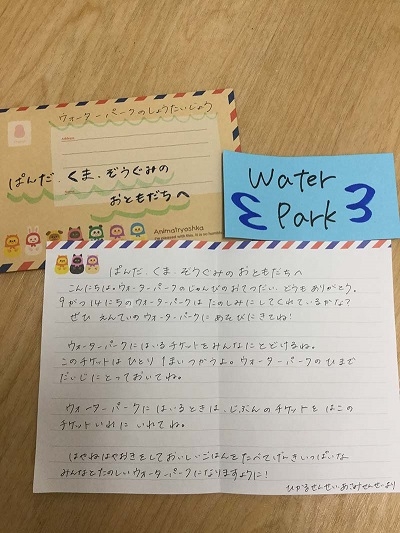 ウォーターパークのしょうたいじょう
ぱんだ、くま、ぞうぐみの
おともだちへ
Animatryoshka
Water
Park
ぱんだ、くま、ぞうぐみのおともだちへ
こんにちは。ウォーターパークのじゅんびのおてつだい、どうもありがとう。
9がつ14にちのウォーターパークはたのしみにしてくれているかな?
ぜひ えんていのウォーターパークに あそびにきてね!
ウォーターパークにはいるチケットをみんなにとどけるね。
このチケットは ひとり 1まいつかうよ。ウォーターパークのひまで
だいじに とっておいてね。
ウォーターパークに はいるときは、じぶんのチケットを はこの
チケットいれに いれてね。
はやねはやおきをして おいしいごはんをたべて げんきいっぱいな
みんなとたのしいウォーターパークになりますように!
ひかるせんせい、あさみせんせいより